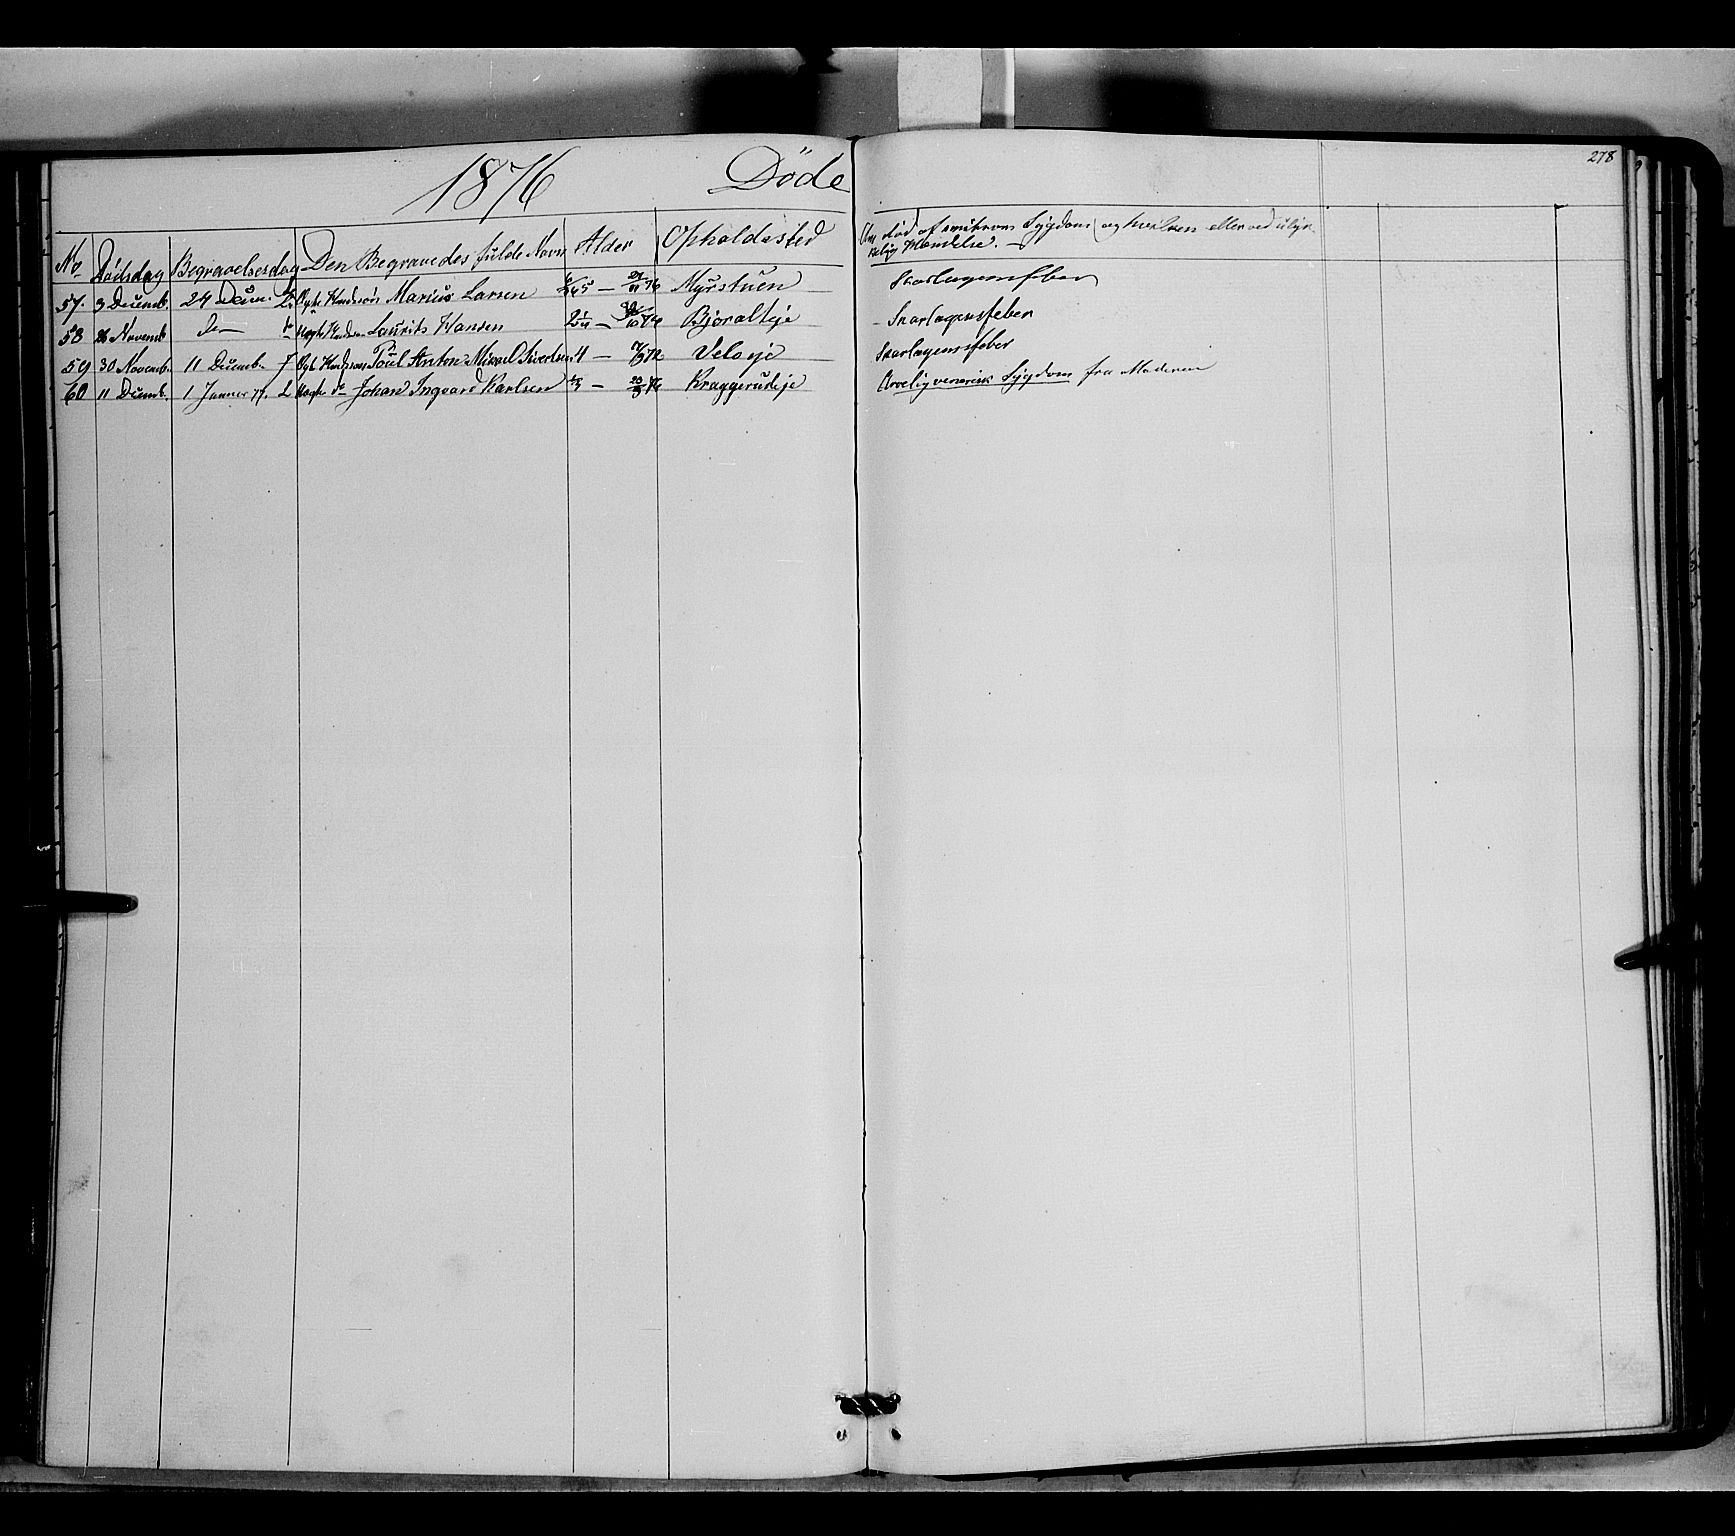 1876 Døde 278
No Dødsdag Begravelsesdag Den Begravedes fulde Navn Alder Opholdssted Om død af Sygdom og hvilken eller ved ulyk-
kelig Hændelse.
57 3 Decemb. 24 Decem. Marius Larsen Myrstuen Skarlagensfeber
58 26 Novemb. do Laurits Hansen Bjøralteje Skarlagensfeber
59 30 Novemb. 11 Decemb. 7 Poul Anton Mikael Sivertsen 4 – Veloeje Skarlagensfeber
60 11 Decemb. 1 Januar 77. Johan Ingvard Karlsen Kraggerudeje Arvelig venerisk Sygdom fra Moderen